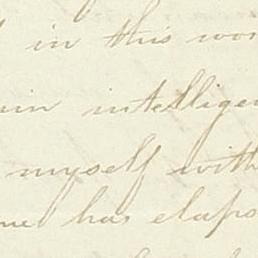 in this wor
in intelligen
myself with
me has elaps